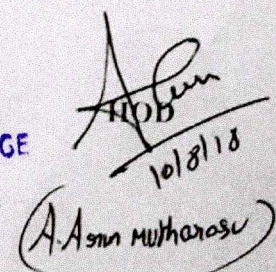 GE
HOD
10/8/18
(A. Asm Mutharasu)